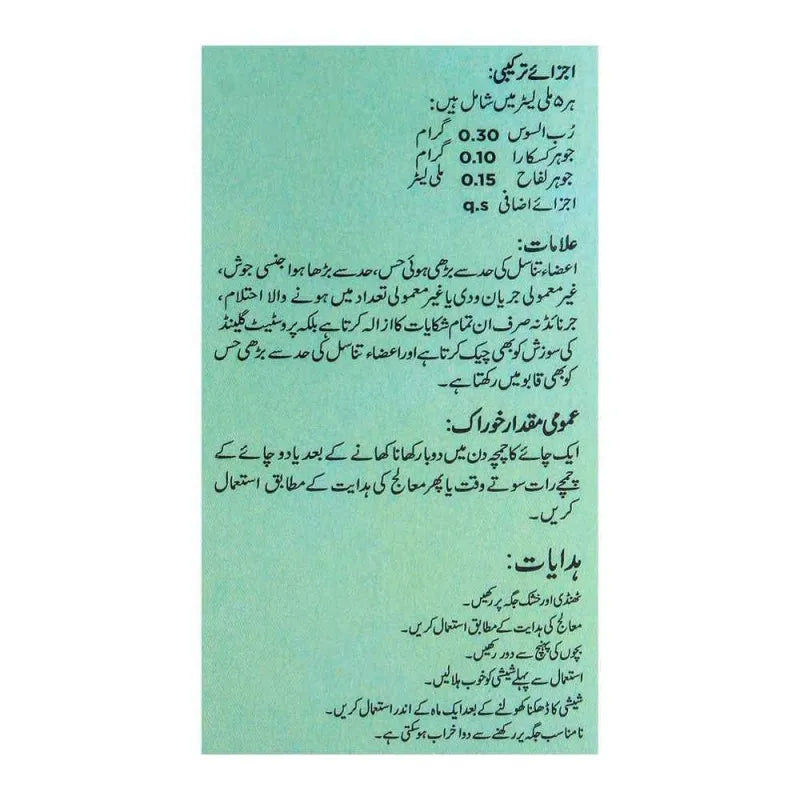 اجزائے ترکیبی:
ہر ۵ ملی لیٹر میں شامل ہیں:
رُب السوس 0.30 گرام
جوہر کسکارا 0.10 گرام
جوہر لفاح 0.15 ملی لیٹر
اجزائے اضافی q.s
علامات:
اعضاء تناسل کی حد سے بڑھی ہوئی حس، حد سے بڑھا ہوا جنسی جوش،
غیر معمولی جریان ودی یا غیر معمولی تعداد میں ہونے والا احتلام،
جرنائڈ نہ صرف ان تمام شکایات کا ازالہ کرتا ہے بلکہ پروسٹیٹ گلینڈ
کی سوزش کو بھی چیک کرتا ہے اور اعضاء تناسل کی حد سے بڑھی حس
کو بھی قابو میں رکھتا ہے۔
عمومی مقدار خوراک:
ایک چائے کا چمچہ دن میں دو بار کھانا کھانے کے بعد یا دو چائے کے
چمچے رات سوتے وقت یا پھر معالج کی ہدایت کے مطابق استعمال
کریں۔
ہدایات:
ٹھنڈی اور خشک جگہ پر رکھیں۔
معالج کی ہدایت کے مطابق استعمال کریں۔
بچوں کی پہنچ سے دور رکھیں۔
استعمال سے پہلے شیشی کو خوب ہلالیں۔
شیشی کا ڈھکنا کھولنے کے بعد ایک ماہ کے اندر استعمال کریں۔
نامناسب جگہ پر رکھنے سے دوا خراب ہوسکتی ہے۔